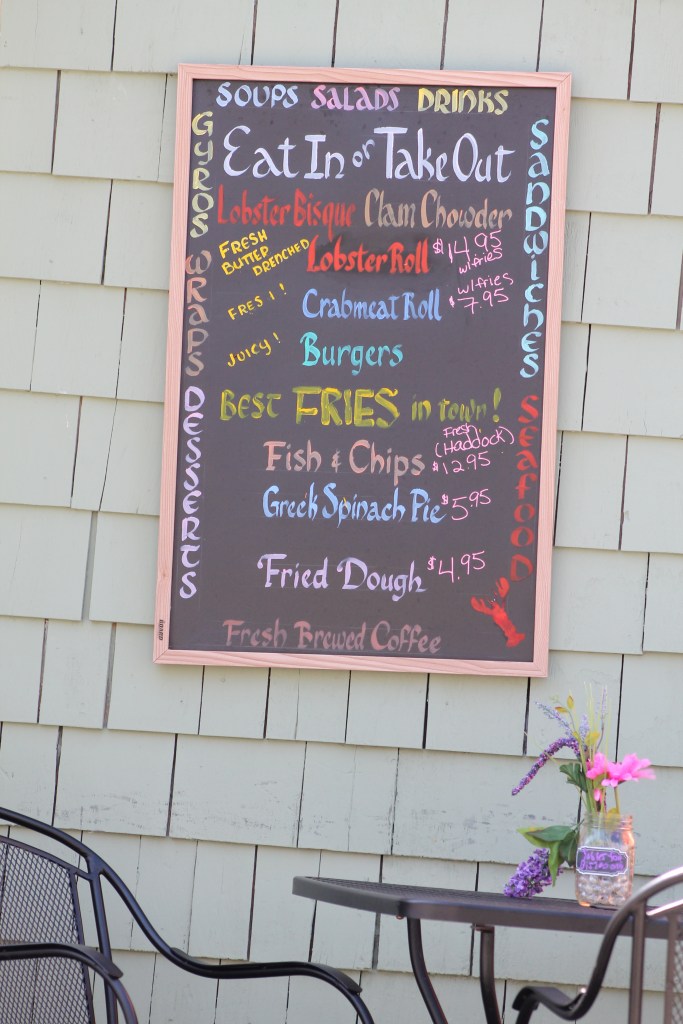 SOUPS SALADS DRINKS
GYROS WRAPS DESSERTS
Eat In or Take Out
Lobster Bisque Clam Chowder
FRESH BUTTER DRENCHED Lobster Roll $14.95 w/fries
FRES ! ! Crabmeat Roll w/fries $7.95
JUICY! Burgers
Best FRIES in town!
Fish & Chips Fresh (Haddock) $12.95
Greek Spinach Pie $5.95
Fried Dough $4.95
Fresh Brewed Coffee
SANDWICHES SEAFOOD